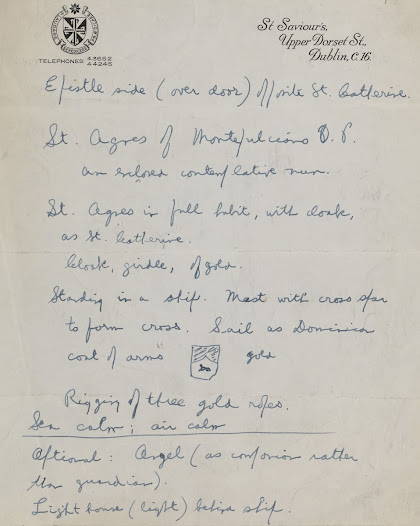 TELEPHONES 43652
44245
St Saviour's,
Upper Dorset St.,
Dublin, C.16.
Epistle side (over door) opposite St. Catherine.
St. Agnes of Montepulciano O.P.
an enclosed contemplative nun.
St. Agnes in full habit, with cloak,
as St. Catherine.
Cloak, girdle, of gold.
Standing in a ship. Mast with cross spar
to form cross. Sail as Dominican
coat of arms gold
Rigging of three gold ropes.
Sea calm; air calm
Optional: Angel (as companion rather
than guardian).
Light house (light) behind ship.